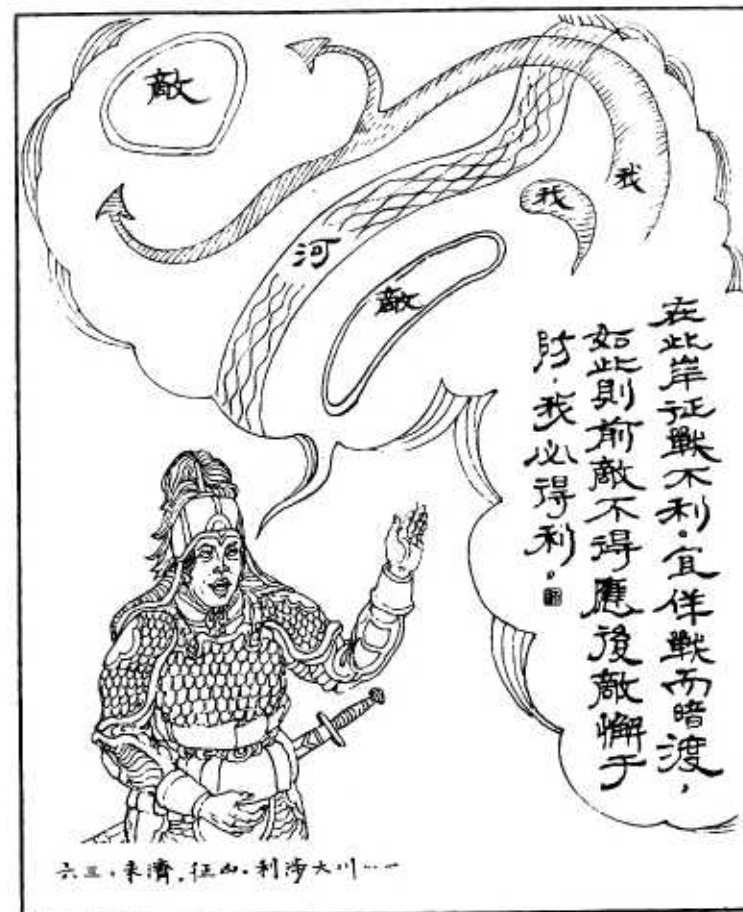 敵
我
我
河
敵
在此岸征戰不利。宜佯戰而暗渡，
如此則前敵不得應後敵懈于
防。我必得利。
六三。未濟。征凶。利涉大川……